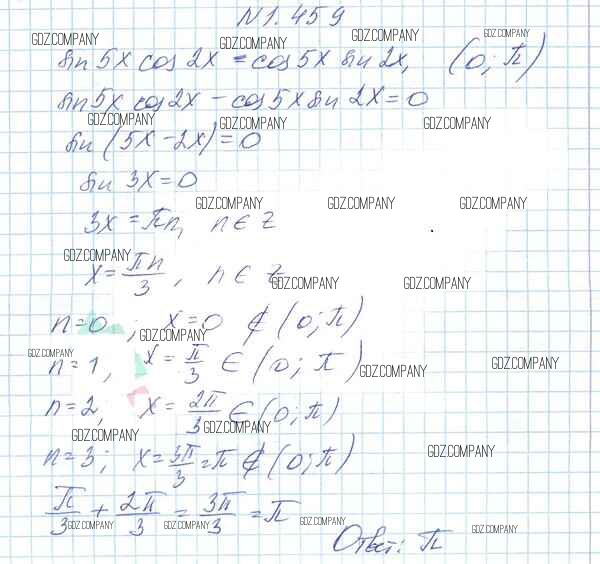 N 1.459
GDZ.COMPANY GDZ.COMPANY GDZ.COMPANY GDZ.COMPANY
sin 5x cos 2x = cos 5x sin 2x, (0; π)
sin 5x cos 2x - cos 5x sin 2x = 0
GDZ.COMPANY GDZ.COMPANY GDZ.COMPANY
sin (5x - 2x) = 0
sin 3x = 0
GDZ.COMPANY GDZ.COMPANY GDZ.COMPANY
3x = πn, n ∈ z
GDZ.COMPANY
x = πn/3, n ∈ z
GDZ.COMPANY GDZ.COMPANY
n = 0; x = 0 ∉ (0; π)
GDZ.COMPANY
GDZ.COMPANY GDZ.COMPANY GDZ.COMPANY
n = 1, x = π/3 ∈ (0; π)
n = 2, x = 2π/3 ∈ (0; π)
GDZ.COMPANY GDZ.COMPANY
n = 3; x = 3π/3 = π ∉ (0; π)
GDZ.COMPANY
π/3 + 2π/3 = 3π/3 = π
GDZ.COMPANY GDZ.COMPANY GDZ.COMPANY GDZ.COMPANY GDZ.COMPANY
Ответ: π